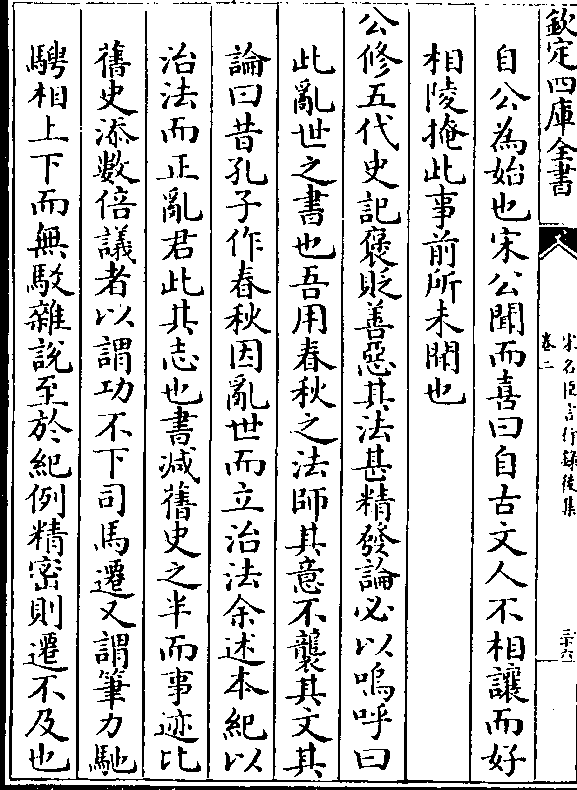 欽定四庫全書
宋名臣言行録後集
卷二
三十六
自公為始也宋公聞而喜曰自古文人不相讓而好
相陵掩此事前所未聞也
公修五代史記褒貶善惡其法甚精發論必以嗚呼曰
此亂世之書也吾用春秋之法師其意不襲其文其
論曰昔孔子作春秋因亂世而立治法余述本紀以
治法而正亂君此其志也書減舊史之半而事迹比
舊史添數倍議者以謂功不下司馬遷又謂筆力馳
騁相上下而無駁雜說至於紀例精密則遷不及也